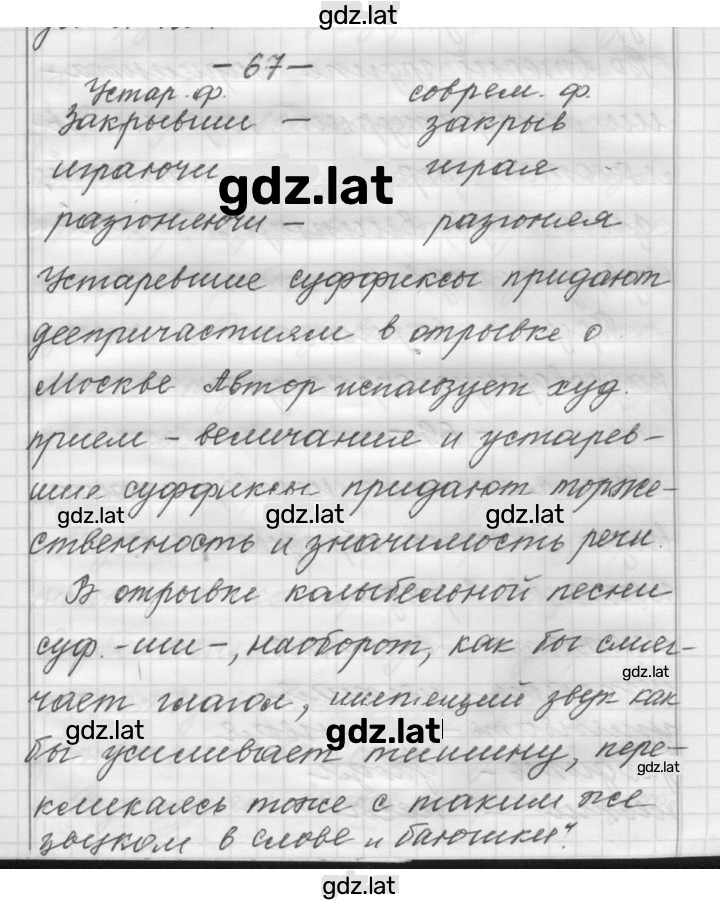 gdz.lat
- 67 -
Устар. ф. соврем. ф.
Закрывши - закрыв
играючи играя
gdz.lat
разгонлючи - разгоняя
Устаревшие суффиксы придают
деепричастиям в отрывке о
Москве Автор использует худ.
прием - величания и устарев-
шие суффиксы придают торже-
gdz.lat gdz.lat gdz.lat
ственность и значимость речи.
В отрывке колыбельной песни
суф. -ши-, наоборот, как бы смяг-
gdz.lat
чает глагол, шипящий звук как
gdz.lat gdz.lat
бы усиливает тишину, пере-
gdz.lat
кликаясь тоже с таким же
звуком в слове „баюшки".
gdz.lat